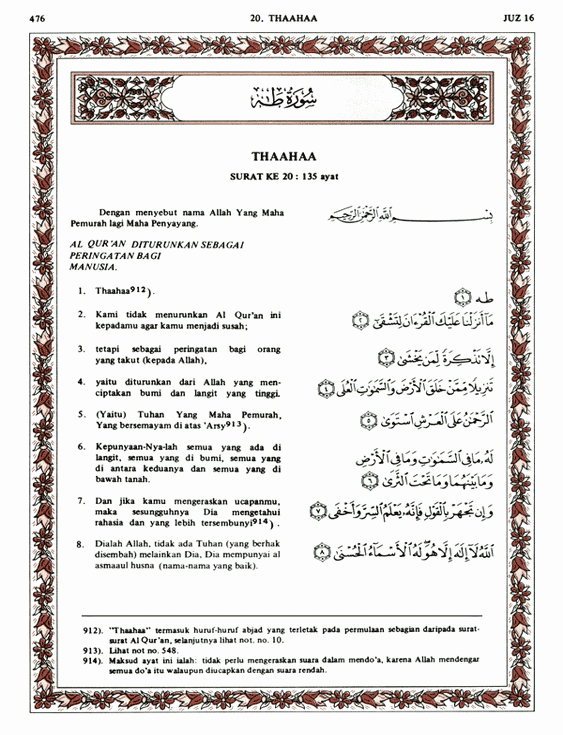 476
20. THAAHAA
JUZ 16
سُورَةُ طٰهٰ
THAAHAA
SURAT KE 20 : 135 ayat
Dengan menyebut nama Allah Yang Maha
Pemurah lagi Maha Penyayang.
بِسْمِ اللَّهِ الرَّحْمَنِ الرَّحِيمِ
AL QUR'AN DITURUNKAN SEBAGAI
PERINGATAN BAGI
MANUSIA.
1. Thaahaa912).
طه ﴿١﴾
2. Kami tidak menurunkan Al Qur'an ini
kepadamu agar kamu menjadi susah;
مَآ أَنزَلْنَا عَلَيْكَ الْقُرْءَانَ لِتَشْقَىٰٓ ﴿٢﴾
3. tetapi sebagai peringatan bagi orang
yang takut (kepada Allah),
إِلَّا تَذْكِرَةً لِّمَن يَخْشَىٰ ﴿٣﴾
4. yaitu diturunkan dari Allah yang men-
ciptakan bumi dan langit yang tinggi.
تَنزِيلًا مِّمَّنْ خَلَقَ الْأَرْضَ وَالسَّمَٰوَٰتِ الْعُلَى ﴿٤﴾
5. (Yaitu) Tuhan Yang Maha Pemurah,
Yang bersemayam di atas 'Arsy913).
الرَّحْمَٰنُ عَلَى الْعَرْشِ اسْتَوَىٰ ﴿٥﴾
6. Kepunyaan-Nya-lah semua yang ada di
langit, semua yang di bumi, semua yang
di antara keduanya dan semua yang di
bawah tanah.
لَهُۥ مَا فِي السَّمَٰوَٰتِ وَمَا فِي الْأَرْضِ
وَمَا بَيْنَهُمَا وَمَا تَحْتَ الثَّرَىٰ ﴿٦﴾
7. Dan jika kamu mengeraskan ucapanmu,
maka sesungguhnya Dia mengetahui
rahasia dan yang lebih tersembunyi914) .
وَإِن تَجْهَرْ بِالْقَوْلِ فَإِنَّهُۥ يَعْلَمُ السِّرَّ وَأَخْفَى ﴿٧﴾
8. Dialah Allah, tidak ada Tuhan (yang berhak
disembah) melainkan Dia, Dia mempunyai al
asmaaul husna (nama-nama yang baik).
اللَّهُ لَآ إِلَٰهَ إِلَّا هُوَ لَهُ الْأَسْمَآءُ الْحُسْنَىٰ ﴿٨﴾
912). "Thaahaa" termasuk huruf-huruf abjad yang terletak pada permulaan sebagian daripada surat-
surat Al Qur'an, selanjutnya lihat not. no. 10.
913). Lihat not no. 548.
914). Maksud ayat ini ialah: tidak perlu mengeraskan suara dalam mendo'a, karena Allah mendengar
semua do'a itu walaupun diucapkan dengan suara rendah.